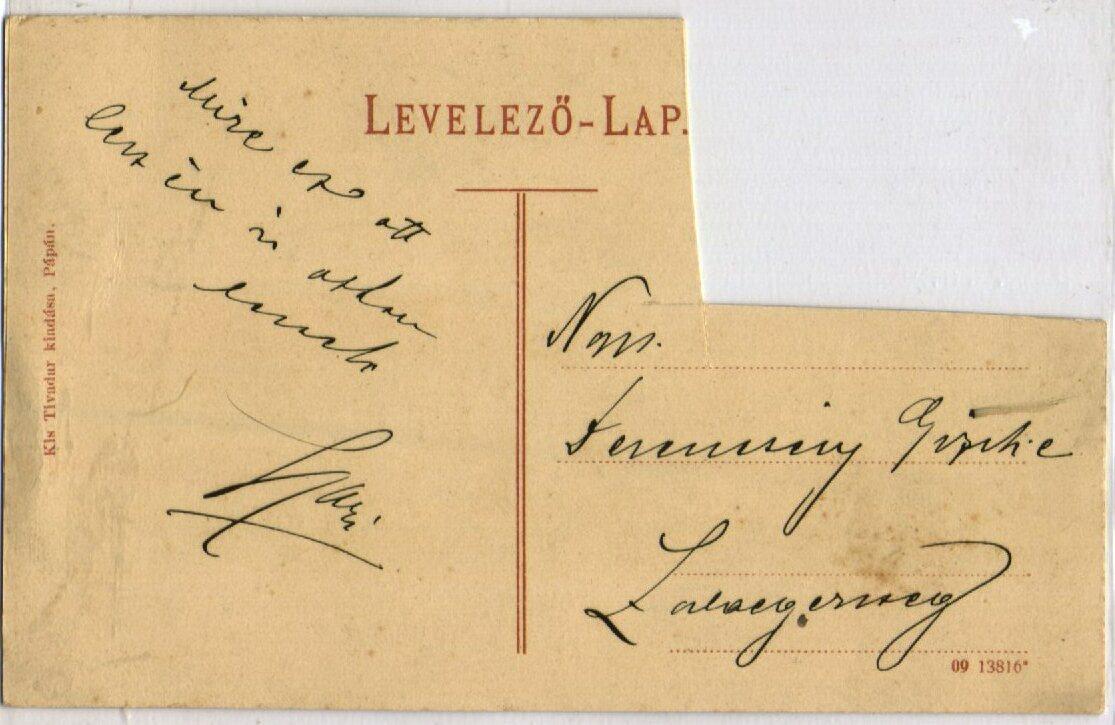 LEVELEZŐ-LAP.
Mire ez ott
lesz én is otthon
leszek
Kis Tivadar kiadása, Pápán.
Ferencsény Giszke
Zalaegerszeg
09 13816*